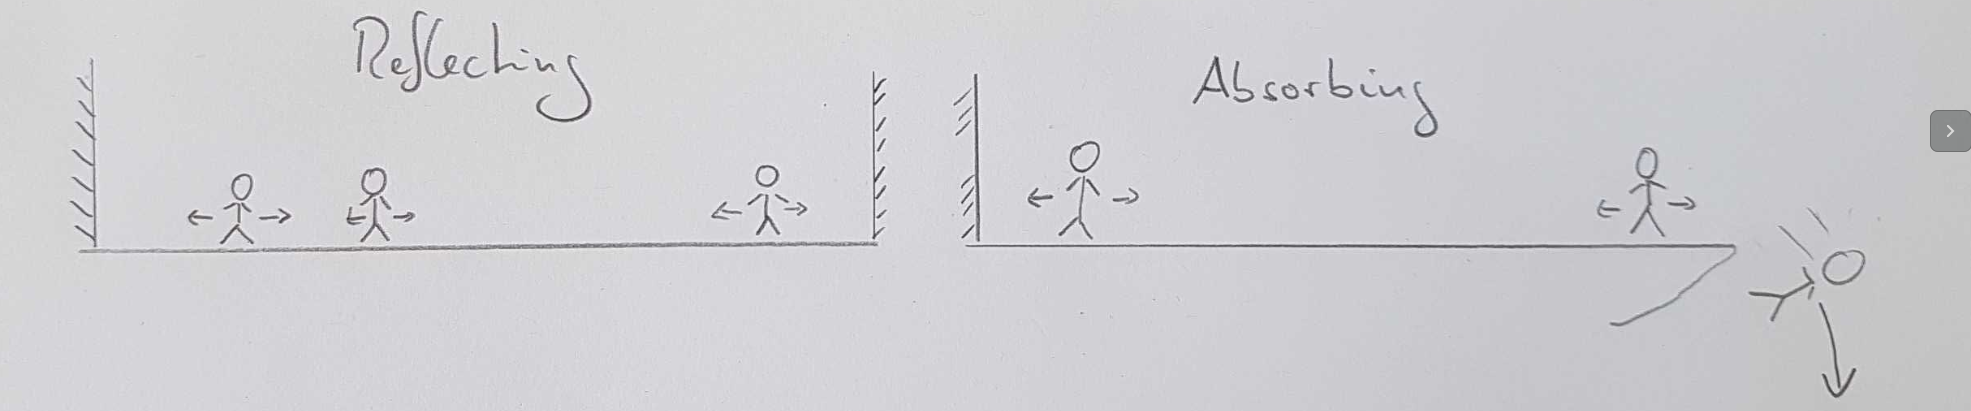 Reflecting
Absorbing